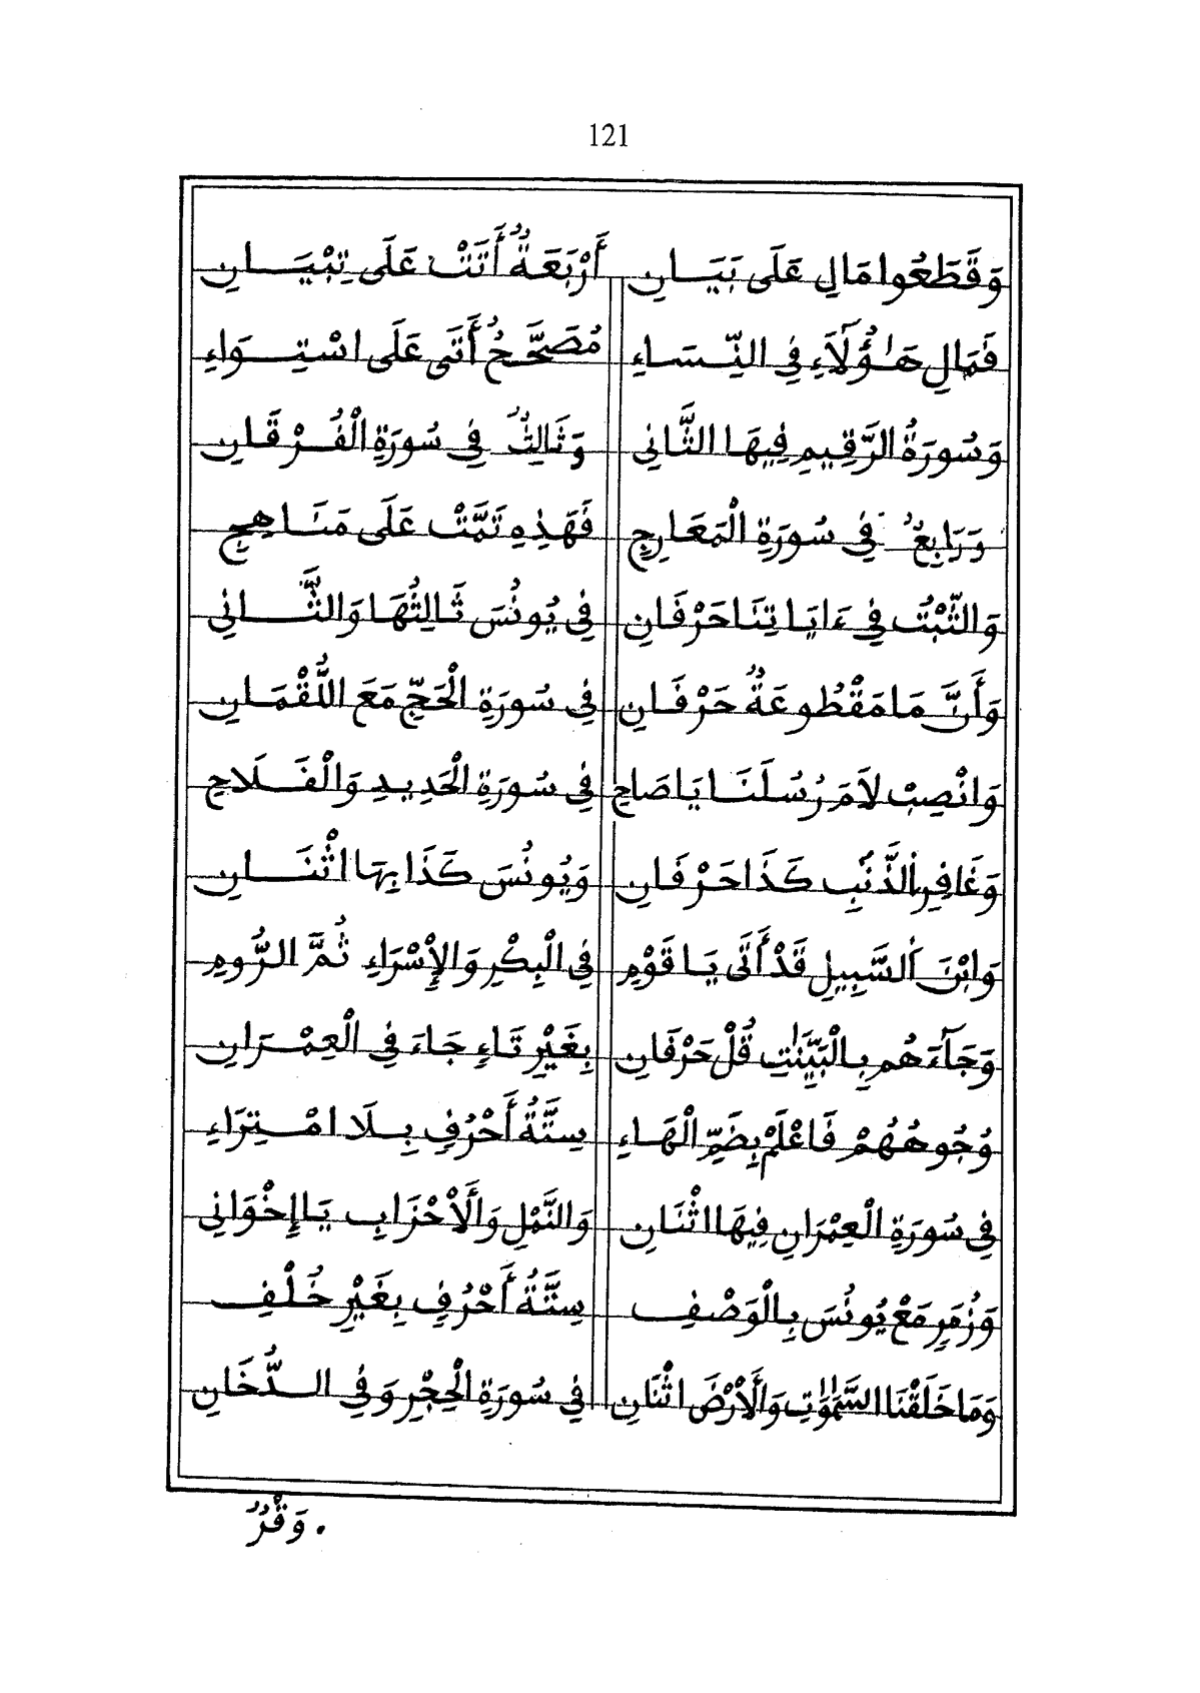 121
وَقَطَعُوا مَالِ عَلَى بَيَـانِ أَرْبَعَةٌ أَتَتْ عَلَى تِبْيَـانِ
فَمَالِ هَـٰؤُلَآءِ فِي النِّـسَـاءِ مُصَحَّحٌ أَتَى عَلَى اسْتِـوَاءِ
وَسُورَةُ الرَّقِيمِ فِيهَا الثَّانِي وَثَالِثٌ فِي سُورَةِ الْفُرْقَانِ
وَرَابِعٌ فِي سُورَةِ الْمَعَارِجِ فَهَذِهِ تَمَّتْ عَلَى مَنَـاهِجِ
وَالثَّبْتُ فِي ءَايَاتِنَا حَرْفَانِ فِي يُونُسَ ثَالِثُهَا وَالثَّـانِي
وَأَنَّ مَا مَقْطُوعَةٌ حَرْفَـانِ فِي سُورَةِ الْحَجِّ مَعَ اللُّقْمَـانِ
وَانْصِبْ لَامَ رُسُلَنَـا يَا صَاحِ فِي سُورَةِ الْحَدِيدِ وَالْفَـلَاحِ
وَغَافِرِ الذَّنْبِ كَذَا حَرْفَانِ وَيُونُسَ كَذَا بِهَا اثْنَـانِ
وَابْنَ السَّبِيلِ قَدْ أَتَى يَـا قَوْمِ فِي الْبِكْرِ وَالْإِسْرَاءِ ثُمَّ الرُّومِ
وَجَآءَهُم بِـالْبَيِّنَـٰتِ قُلْ حَرْفَانِ بِغَيْرِ تَاءٍ جَاءَ فِي الْعِمْـرَانِ
وُجُوهُهُمْ فَاعْلَمْ بِضَمِّ الْهَـاءِ سِتَّةُ أَحْرُفٍ بِـلَا امْـتِرَاءِ
فِي سُورَةِ الْعِمْرَانِ فِيهَا اثْنَانِ وَالنَّمْلِ وَالْأَحْزَابِ يَا إِخْوَانِي
وَزُمَرٍ مَعْ يُونُسَ بِـالْوَصْفِ سِتَّةُ أَحْرُفٍ بِغَيْرِ خُلْفِ
وَمَا خَلَقْنَا السَّمَٰوَٰتِ وَالْأَرْضَ اثْنَانِ فِي سُورَةِ الْحِجْرِ وَفِي الـدُّخَانِ
. وَقْرٌ